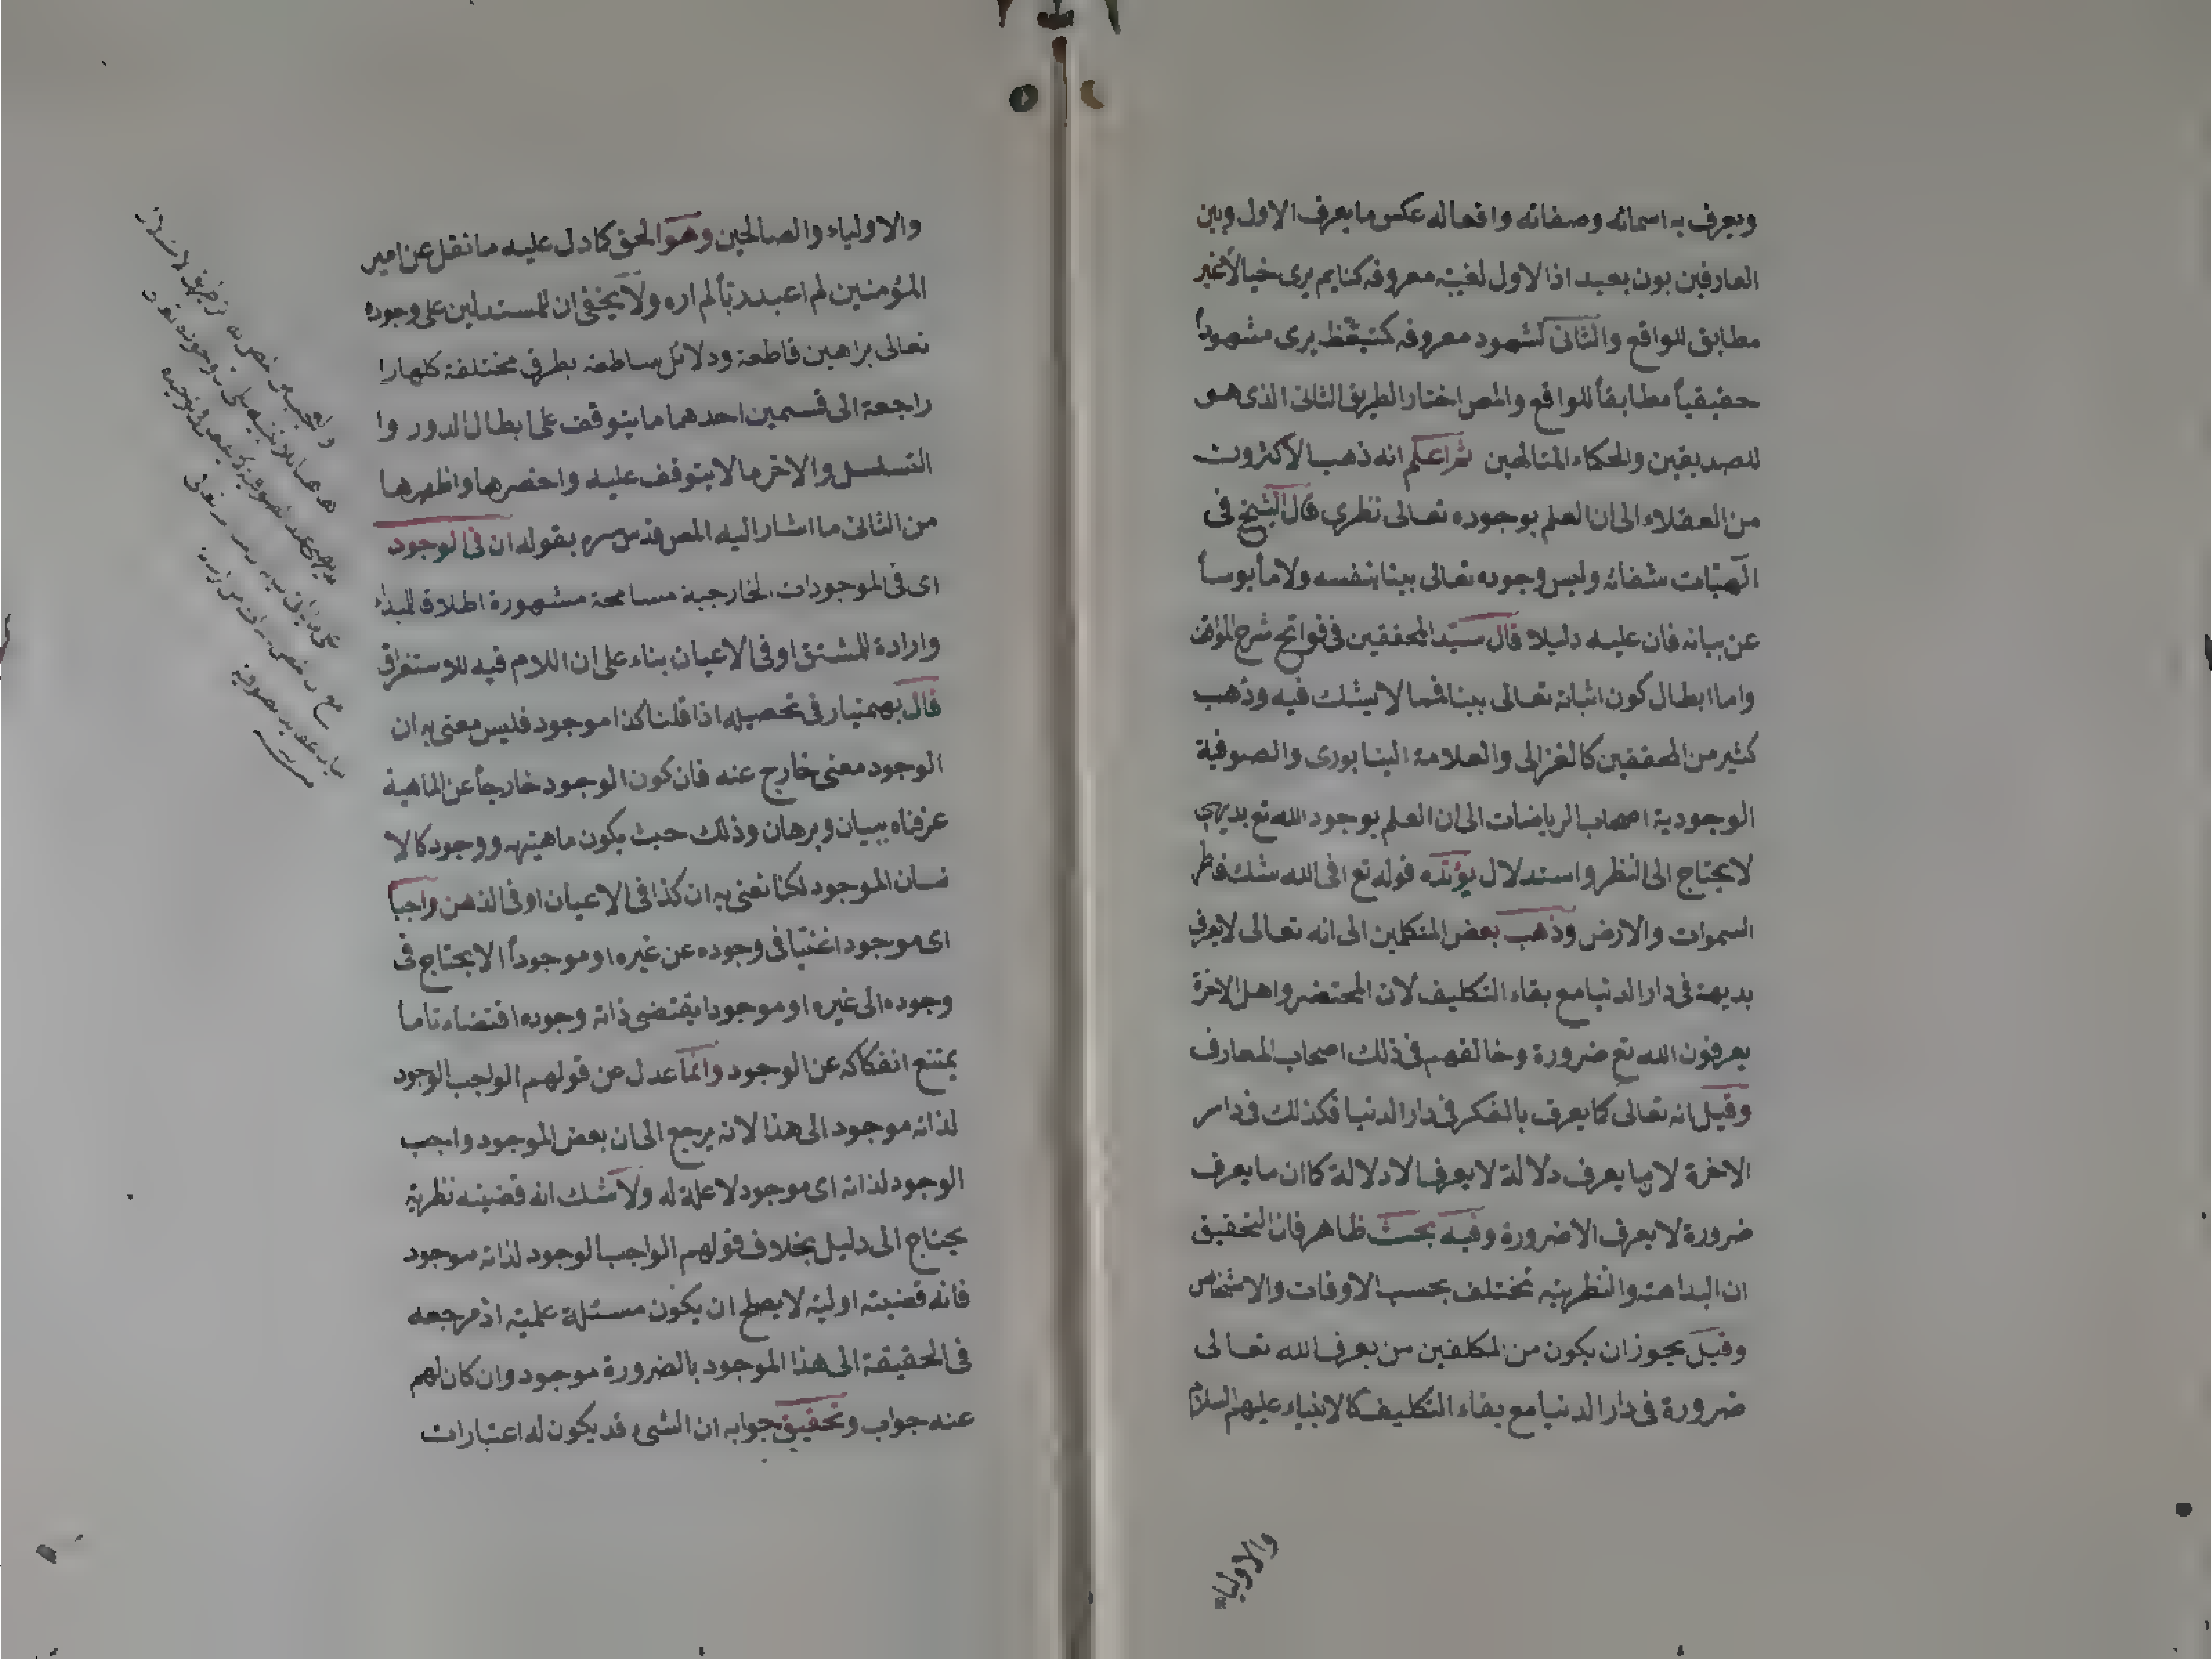 ويعرف به اسمائه وصفاته وافعاله عكس ما يعرف الاول وبين
العارفين بون بعيد اذ الاول لغيبة معروفه كنايم يرى خيالاً غير
مطابق للواقع والثانى لشهود معروفه كتيقظ يرى مشهوداً
حقيقياً مطابقاً للواقع والمص اختار الطريق الثانى الذى هو
للصديقين والحكاء المتالهين ثم اعلم انه ذهب الاكثرون
من العقلاء الى ان العلم بوجوده تعالى نظرى قال الشيخ فى
الهيّات شفائه وليس وجوده تعالى بينا بنفسه ولا مأيوساً
عن بيانه فان عليه دليلا قال سيّد المحققين فى فواتح شرح المواقف
واما ابطال كون اثباته تعالى بينا فمما لا يشك فيه وذهب
كثير من المحققين كالغزالى والعلامة النيسابورى والصوفية
الوجودية اصحاب الرياضات الى ان العلم بوجود الله تع بديهى
لا يحتاج الى النظر واستدلال يؤيده قوله تع افى الله شك فاطر
السموات والارض وذهب بعض المتكلمين الى انه تعالى لا يعرف
بديهة فى دار الدنيا مع بقاء التكليف لان المحتضر واهل الاخرة
يعرفون الله تع ضرورة وخالفهم فى ذلك اصحاب المعارف
وقيل انه تعالى كما يعرف بالفكر فى دار الدنيا فكذلك فى دار
الاخرة لان ما يعرف دلالة لا يعرف الا دلالة كما ان ما يعرف
ضرورة لا يعرف الا ضرورة وفيه بحث ظاهر فان التحقيق
ان البداهة والنظرية تختلف بحسب الاوقات والاشخاص
وقيل يجوز ان يكون من المكلفين من يعرف الله تعالى
ضرورة فى دار الدنيا مع بقاء التكليف كالانبياء عليهم السلام
والاولياء
والاولياء والصالحين وهو الحق كما دل عليه ما نقل عن امير
المؤمنين لم اعبد رباً لم اره ولا يخفى ان للمستدلين على وجوده
تعالى براهين قاطعة ودلائل ساطعة بطرق مختلفة كلها را
راجعة الى قسمين احدهما ما يتوقف على ابطال الدور وا
التسلسل والاخر ما لا يتوقف عليه واخصرها واظهرها
من الثانى ما اشار اليه المص قدس سره بقوله ان فى الوجود
اى فى الموجودات الخارجية مسامحة مشهورة اطلاقا للمبداء
وارادة للمشتق او فى الاعيان بناء على ان اللام فيه للاستغراق
قال بهمنيار فى تحصيله اذا قلنا كذا موجود فليس معنى به ان
الوجود معنى خارج عنه فان كون الوجود خارجاً عن الماهية
عرفناه ببيان وبرهان وذلك حيث يكون ماهية ووجود كالا
نسان الموجود لكنا نعنى به ان كذا فى الاعيان او فى الذهن واجباً
اى موجودا غنيّا فى وجوده عن غيره او موجوداً لا يحتاج فى
وجوده الى غيره او موجودا يقتضى ذاته وجوده اقتضاء تاما
يمتنع انفكاكه عن الوجود وانّما عدل عن قولهم الواجب الوجود
لذاته موجود الى هذا لانه يرجع الى ان بعض الموجود واجب
الوجود لذاته اى موجود لا علة له ولا شك انه قضية نظرية
يحتاج الى دليل بخلاف قولهم الواجب الوجود لذاته موجود
فانه قضية اولية لا يصلح ان يكون مسئلة علمية اذ مرجعه
فى الحقيقة الى هذا الموجود بالضرورة موجود وان كان لهم
عنه جواب وتحقيق جوابه ان الشىء قد يكون له اعتبارات